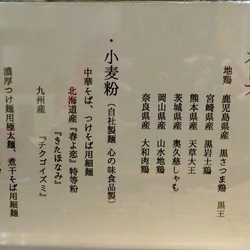 地鶏 鹿児島県産 黒さつま鶏 黒王
宮崎県産 黒岩土鶏
熊本県産 天草大王
茨城県産 奥久慈しゃも
岡山県産 山水地鶏
奈良県産 大和肉鶏
・小麦粉（自社製麺 心の味食品製）
中華そば、つけそば用細麺
北海道産『春よ恋』特等粉
『きたほなみ』
九州産 『チクゴイズミ』
濃厚つけ麺用極太麺、煮干そば用細麺